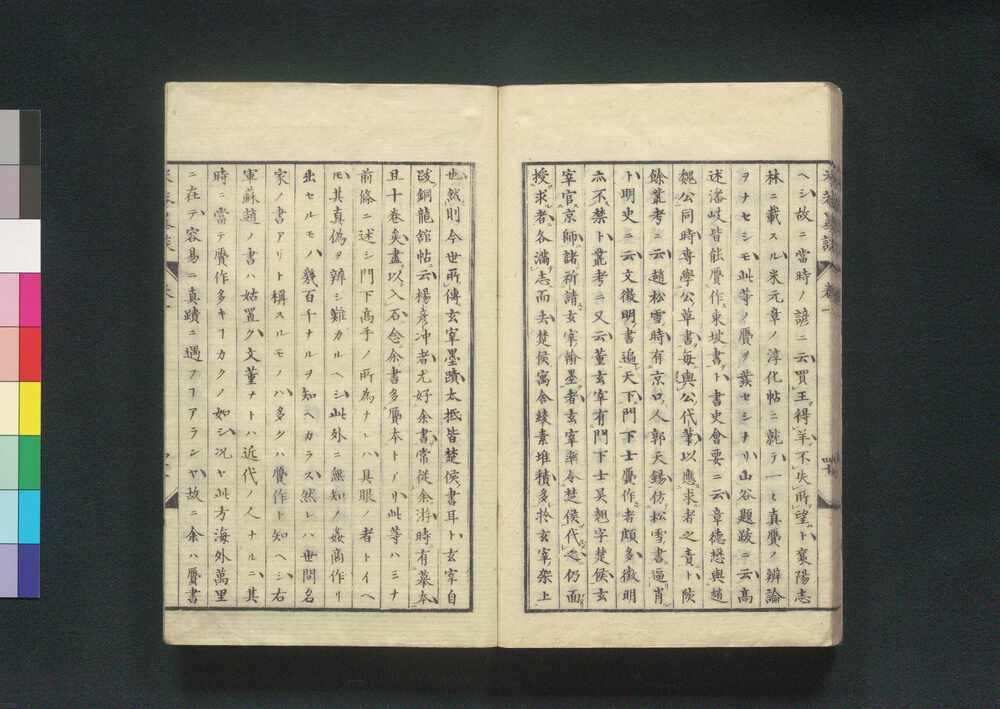 ヘシ故ニ當時ノ諺ニ云買王得羊不失所望ト襄陽志
林ニ載スル米元章ノ淳化帖ニ就テ一々真贋ノ辨論
ヲナセシモ此等ノ贋ヲ糞セシナリ山谷題跋ニ云高
述潘岐皆能贋作東坡書ト書史會要ニ云章德懋與趙
魏公同時專學公草書毎與公代筆以應求者之責ト陔
餘叢考ニ云趙松雪時有京口人郭天錫仿松雪書逼肖
ト明史ニ云文徵明書遍天下門下士贋作者頗多徵明
亦不禁ト叢考ニ又云董玄宰有門下士吴翹字楚侯玄
宰官京師諸祈請玄宰翰墨者玄宰率令楚侯代之仍面
授求者各滿志而去楚侯寓舍綾素堆積多於玄宰架上
也然則今世所傳玄宰墨蹟太抵皆楚侯書耳ト玄宰自
跋銅龍舘帖云楊彦冲者尤好余書常從余游時有摹本
且十卷矣盡以入石念余書多贋本トアリ此等ハミナ
前條ニ述シ門下高手ノ所為ナレハ具眼ノ者トイヘ
𪜈其真偽ヲ辨シ難カルヘシ此外ニ無知ノ姦商作リ
出セルモノ幾百千ナルヲ知ヘカラス然レハ世間名
家ノ書アリト稱スルモノハ多クハ贋作ト知ヘシ右
軍蘇趙ノ書ハ姑置ク文董ナトハ近代ノ人ナルニ其
時ニ當テ贋作多キコカクノ如シ况ヤ此方海外萬里
ニ在テ容易ニ真蹟ニ遇フコアランヤ故ニ余ハ贋書